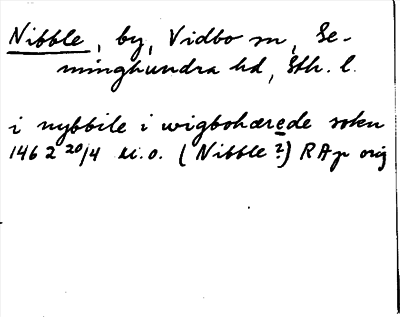 Nibble, by, Vidbo sn, Se-
minghundra hd, Sth. l.
i nybbile i wigbohærede soken
1462 20/4 u.o. (Nibble?) RAp orig